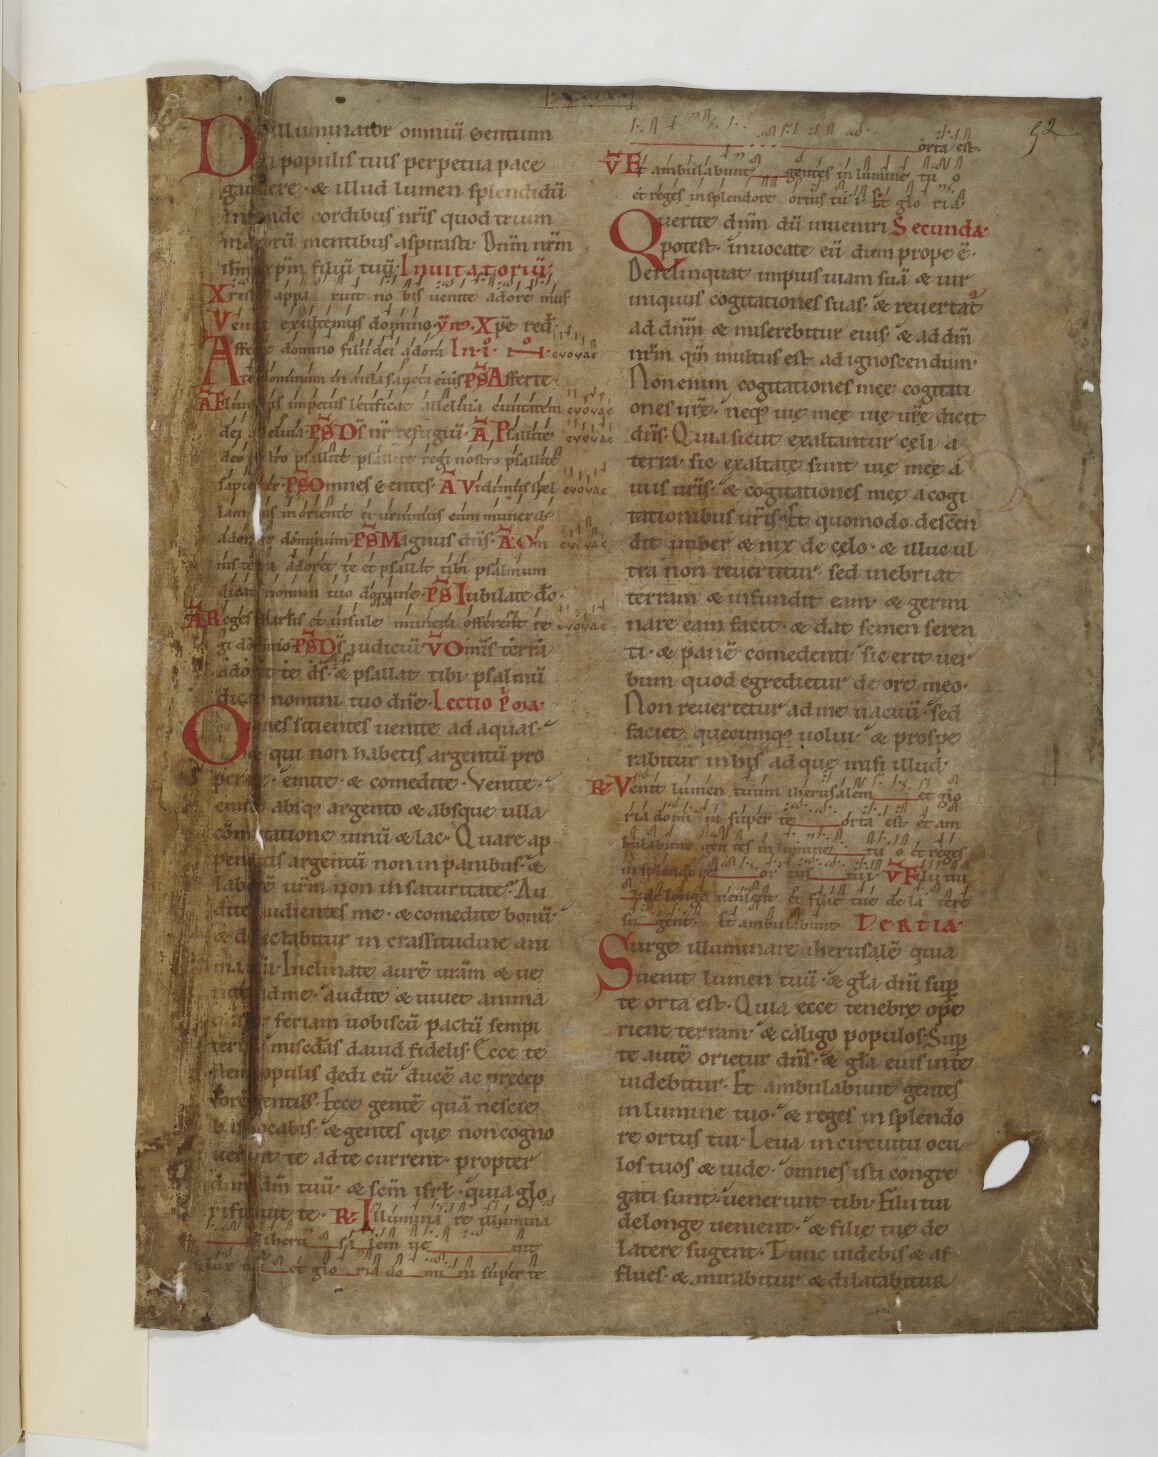 XXIX
52
Ds illuminator omniū Gentium
da populis tuis perpetua pace
gaudere · & illud lumen splendidū
infunde cordibus nr̄is quod trium
magorū mentibus aspirasti · Dn̄m nr̄m
ih̄m xp̄m filiū tuū · Invitatoriū ·
Xristus apparuit nobis venite adoremus
Venite exultemus domino
Afferte domino filii dei adora evovae
te dominum in aula sancta eius PS Afferte ·
A Fluminis impetus letificat alleluia civitatem evovae
dei alleluia · PS Ds̄ nr̄ refugiū · A Psallite evovae
deo nostro psallite psallite regi nostro psallite
sapienter · PS Omnes Gentes · A Vidimus stel evovae
lam eius in oriente et venimus cum muneribus
adorare dominum · PS Magnus dn̄s · A Om evovae
nis terra adoret te et psallat tibi psalmum
dicat nomini tuo domine · PS Iubilate dō ·
A Reges tharsis et insule munera offerent re evovae
gi domino PS Ds̄ iudiciū V Omīs terra
adoret te ds̄ · & psallat tibi · psalmū
dicat nomini tuo dn̄e · Lectio
Omnes sitientes venite ad aquas ·
& qui non habetis argentū pro
perate · emite · & comedite · Venite ·
emite absq; argento & absque ulla
cōmutatione vinū & lac · Quare ap
penditis argentū non in panibus · &
laborē vr̄m non in saturitate · Au
dite audientes me · & comedite bonū ·
& delectabitur in crassitudine ani
ma vr̄a · Inclinate aurē vr̄am & ve
nite ad me · audite & vivet anima
vr̄a · & feriam vobiscū pactū sempi
ternū · misc̄das david fidelis · Ecce te
stem populis dedi eū · ducē ac precep
torē gentib; · Ecce gentē quā nescie
bas vocabis · & gentes que non cogno
verunt te ad te current · propter
dn̄m dm̄ tuū · & sc̄m isrl̄ · quia glo
rificavit te · R Illuminare illumina
re iherusalem venit
lux tua et gloria domini super te
orta est ·
V Et ambulabunt gentes in lumine tuo
et reges in splendore ortus tui · Et gloria ·
Querite dn̄m dū inveniri Secunda ·
potest · invocate eū dum prope ē ·
Derelinquat impius viam suā & vir
iniquus cogitationes suas · & revertat̄
ad dn̄m & miserebitur eius · & ad dm̄
nr̄m qm̄ multus est ad ignoscendum ·
Non enim cogitationes meę cogitati
ones vr̄ę · neq; vię meę vię vr̄e dicit
dn̄s · Quia sicut exaltantur cęli a
terra · sic exaltatę sunt vię meę a
viis vr̄is · & cogitationes meę a cogi
tationibus vr̄is · Et quomodo descen
dit imber & nix de cęlo · & illuc ul
tra non revertitur · sed inebriat
terram & infundit eam · & germi
nare eam facit · & dat semen seren
ti · & panē comedenti · sic erit ver
bum quod egredietur de ore meo ·
Non revertetur ad me vacuū · sed
faciet quecumq; volui · & prospe
rabitur in his ad que misi illud ·
R Venit lumen tuum iherusalem et glo
ria domini super te orta est et am
bulabunt gentes in lumine tuo et reges
in splendore ortus tui · V Filii tui
de longe venient et filie tue de latere
surgent · Et ambulabunt TERTIA ·
Surge illuminare iherusalē quia
venit lumen tuū · & gl̄a dn̄i sup̄
te orta est · Quia ecce tenebre ope
rient terram · & caligo populos · Sup̄
te autē orietur dn̄s · & gl̄a eius in te
videbitur · Et ambulabunt gentes
in lumine tuo · & reges in splendo
re ortus tui · Leva in circuitu ocu
los tuos & vide · omnes isti congre
gati sunt · venerunt tibi · Filii tui
de longe venient · & filie tue de
latere sugent · Tunc videbis & af
flues · & mirabitur & dilatabitur